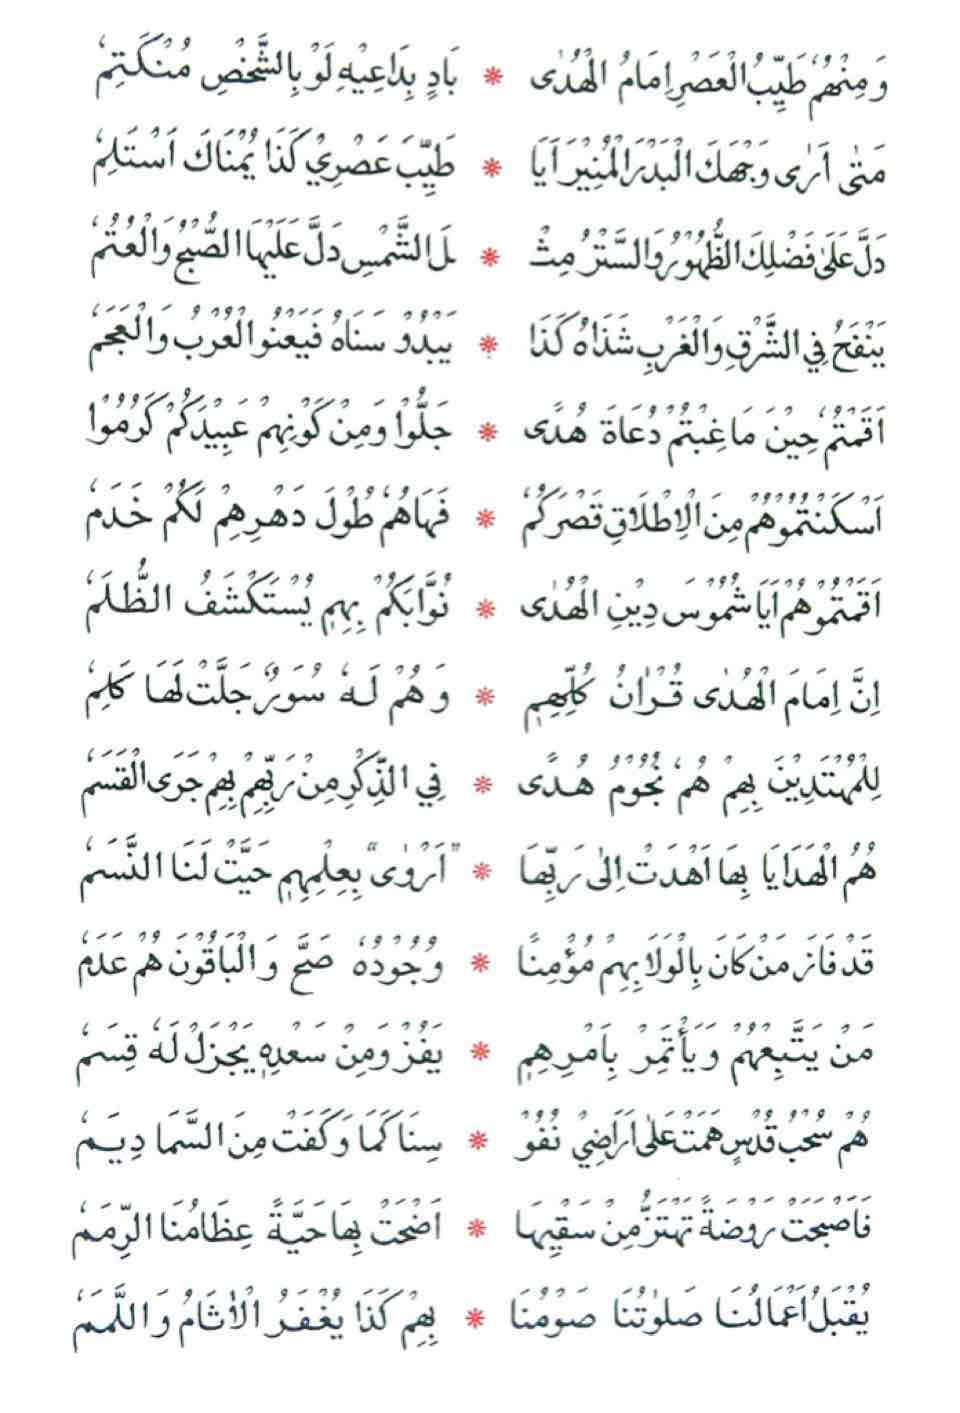 وَمِنْهُمُ طَيِّبُ الْعَصْرِ اِمَامُ الْهُدٰى * بَادٍ بِدَاعِيْهِ لَوْ بِالشَّخْصِ مُنْكَتِمُ
مَتٰى اَرٰى وَجْهَكَ الْبَدْرَ الْمُنِيْرَ اَيَا * طَيِّبَ عَصْرِيْ كَذَا يُمْنَاكَ اَسْتَلِمُ
دَلَّ عَلٰى فَضْلِكَ الظُّهُوْرُ وَالسَّتْرُ مِثْ * لَ الشَّمْسِ دَلَّ عَلَيْهَا الصُّبْحُ وَالْعُتُمُ
يَنْفَحُ فِي الشَّرْقِ وَالْغَرْبِ شَذَاهُ كَذَا * يَبْدُوْ سَنَاهُ فَيَعْنُو الْعُرْبُ وَالْعَجَمُ
اَقَمْتُمُ حِيْنَ مَا غِبْتُمْ دُعَاةَ هُدًى * جَلُّوْا وَمِنْ كَوْنِهِمْ عَبِيْدَكُمْ كَرُمُوْا
اَسْكَنْتُمُوْهُمْ مِنَ الْاِطْلَاقِ قَصْرَكُمُ * فَهَاهُمُ طُوْلَ دَهْرِهِمْ لَكُمْ خَدَمُ
اَقَمْتُمُوْهُمْ اَيَا شُمُوْسَ دِيْنِ الْهُدٰى * نُوَّابَكُمْ بِهِمِ يُسْتَكْشَفُ الظُّلَمُ
اِنَّ اِمَامَ الْهُدٰى قُرْاٰنُ كُلِّهِمِ * وَهُمْ لَهُ سُوَرٌ جَلَّتْ لَهَا كَلِمُ
لِلْمُهْتَدِيْنَ بِهِمْ هُمُ نُجُوْمُ هُدًى * فِي الذِّكْرِ مِنْ رَبِّهِمْ بِهِمْ جَرَى الْقَسَمُ
هُمُ الْهَدَايَا بِهَا اَهْدَتْ اِلٰى رَبِّهَا * "اَرْوٰى" بِعِلْمِهِمِ حَيَّتْ لَنَا النَّسَمُ
قَدْ فَازَ مَنْ كَانَ بِالْوَلَا بِهِمْ مُؤْمِنًا * وُجُوْدُهُ صَحَّ وَالْبَاقُوْنَ هُمْ عَدَمُ
مَنْ يَتَّبِعْهُمْ وَيَأْتَمِرْ بِاَمْرِهِمِ * يَفُزْ وَمِنْ سَعْدِهِ يَجْزَلْ لَهُ قِسَمُ
هُمْ سُحْبُ قُدْسٍ هَمَتْ عَلٰى اَرَاضِيْ نُفُوْ * سِنَا كَمَا وَكَفَتْ مِنَ السَّمَا دِيَمُ
فَاَصْبَحَتْ رَوْضَةً تَهْتَزُّ مِنْ سَقْيِهَا * اَضْحَتْ بِهَا حَيَّةً عِظَامُنَا الرِّمَمُ
يُقْبَلُ اَعْمَالُنَا صَلٰوتُنَا صَوْمُنَا * بِهِمْ كَذَا يُغْفَرُ الْاٰثَامُ وَاللَّمَمُ